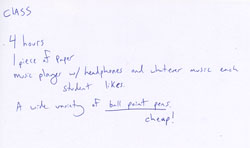 CLASS
4 hours
1 piece of paper
music player w/ headphones and whatever music each
student likes.
A wide variety of ball point pens.
cheap!